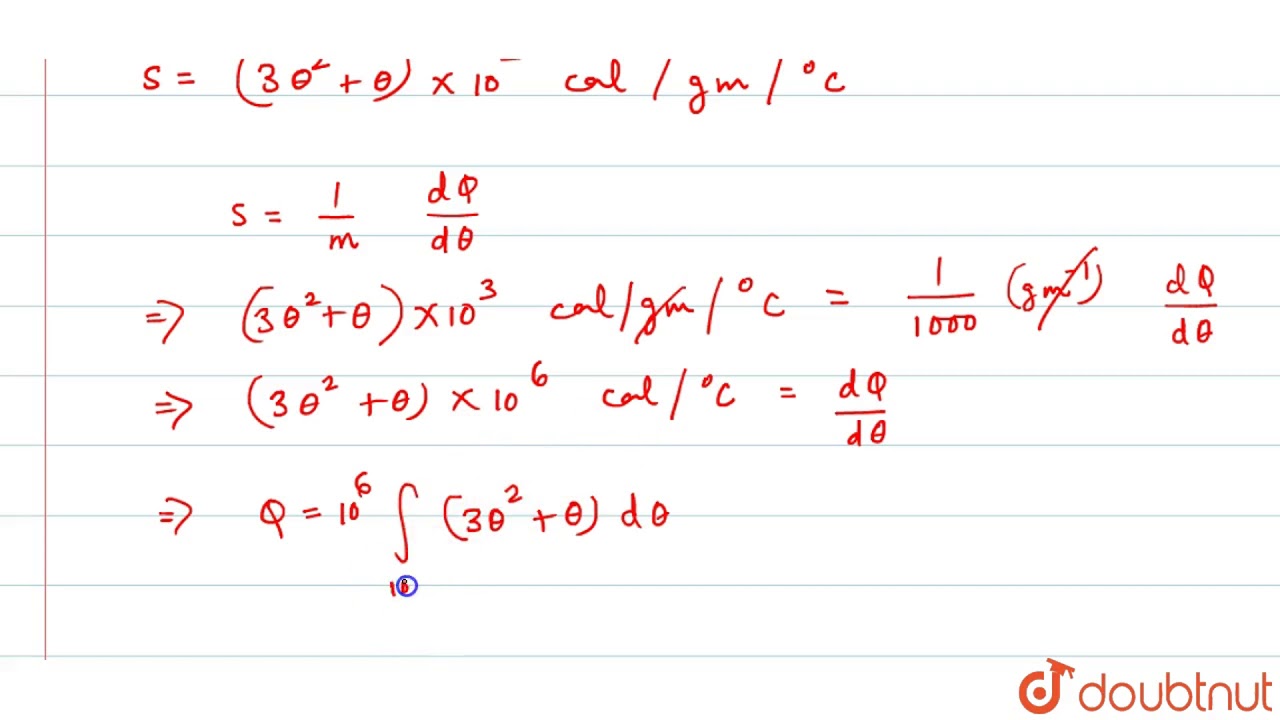 S = (3θ² + θ) × 10 cal / gm / °C
S = 1/m dQ/dθ
⇒ (3θ² + θ) × 10³ cal / gm / °C = 1/1000 (gm⁻¹) dQ/dθ
⇒ (3θ² + θ) × 10⁶ cal / °C = dQ/dθ
⇒ Q = 10⁶ ∫ (3θ² + θ) dθ
10
doubtnut